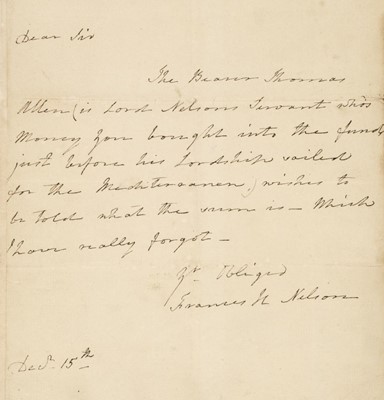 Dear Sir
The Bearer Thomas
Allen (is Lord Nelsons Servant who's
Money you bought into the funds
just before his Lordship sailed
for the Mediterranean) wishes to
be told what the sum is – Which
I have really forgot –
Yr Obliged
Frances H Nelson
Decr. 15th